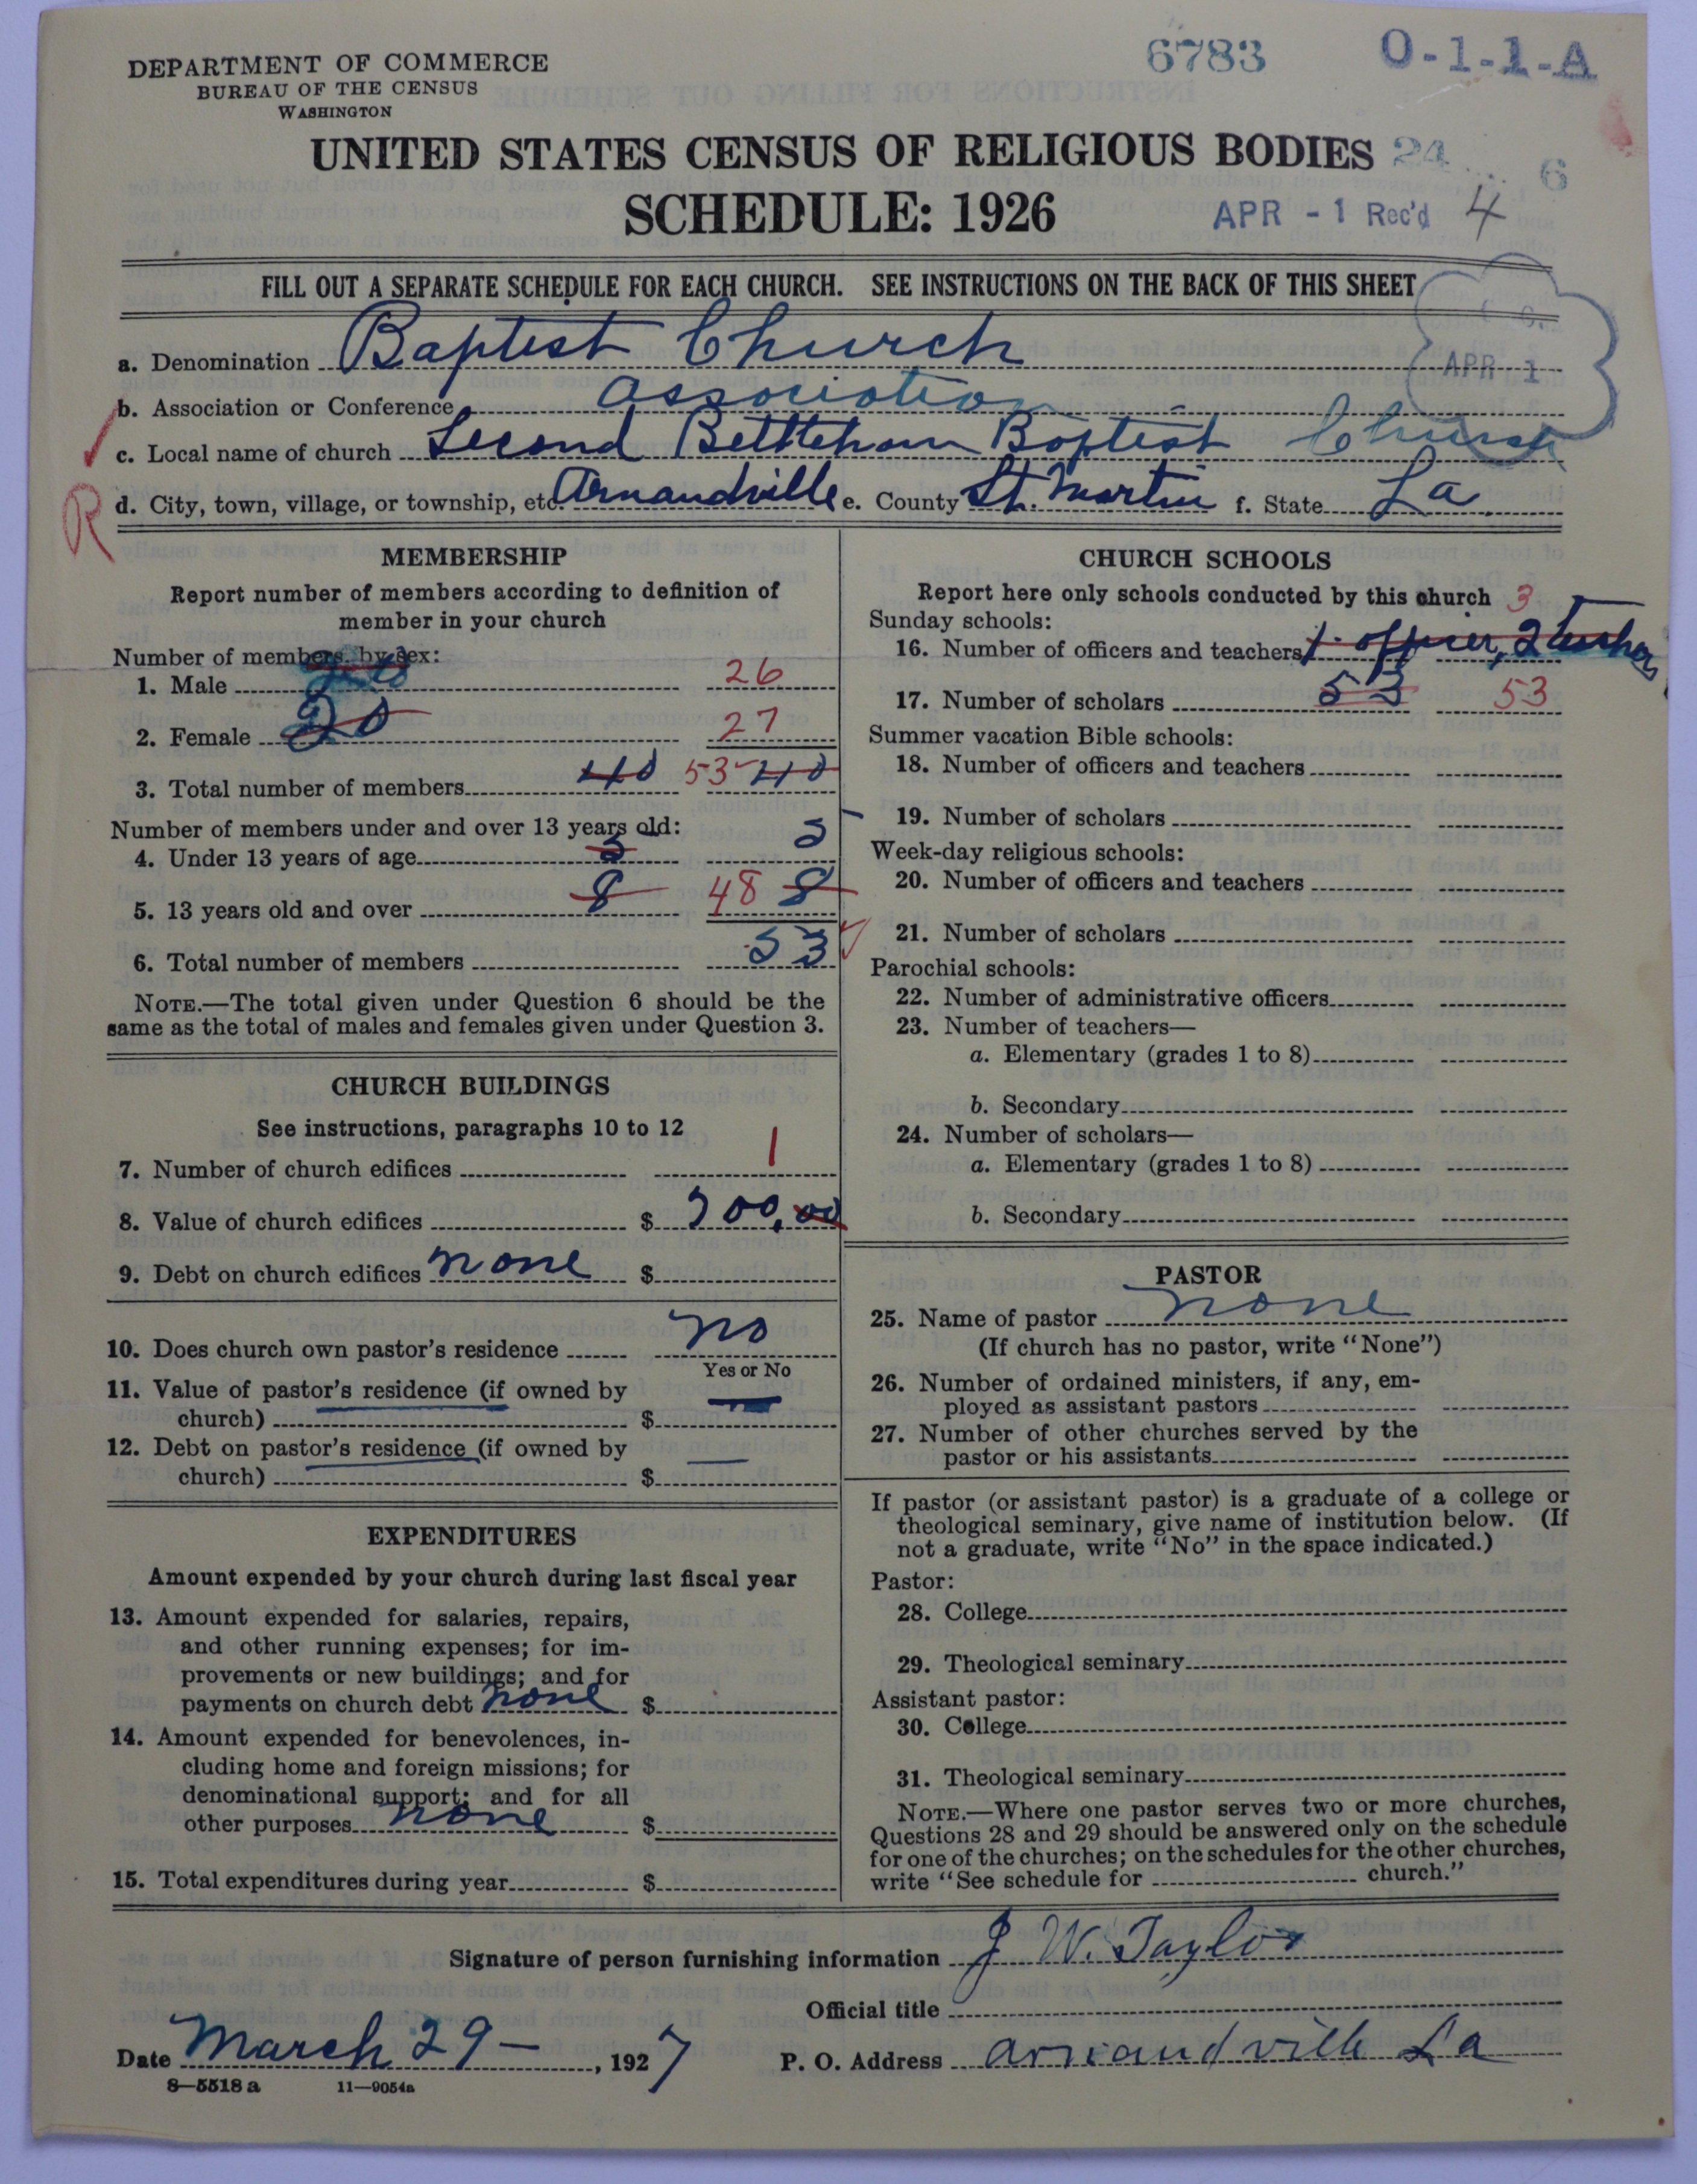 DEPARTMENT OF COMMERCE
BUREAU OF THE CENSUS
WASHINGTON
6783
O-1-1-A
UNITED STATES CENSUS OF RELIGIOUS BODIES
24
6
SCHEDULE: 1926
APR - 1 Rec'd
4
FILL OUT A SEPARATE SCHEDULE FOR EACH CHURCH. SEE INSTRUCTIONS ON THE BACK OF THIS SHEET
APR 1
a. Denomination Baptist Church
b. Association or Conference Association
c. Local name of church Second Bethlehem Baptist Church
d. City, town, village, or township, etc. Arnaudville e. County St. Martin f. State La.
R
MEMBERSHIP
Report number of members according to definition of
member in your church
Number of members by sex:
1. Male 26
2. Female 20 27
3. Total number of members 40 53 40
Number of members under and over 13 years old:
4. Under 13 years of age 5 5
5. 13 years old and over 8 48 8
6. Total number of members 53
NOTE.—The total given under Question 6 should be the
same as the total of males and females given under Question 3.
CHURCH BUILDINGS
See instructions, paragraphs 10 to 12
7. Number of church edifices 1
8. Value of church edifices $ 00.00
9. Debt on church edifices none $
10. Does church own pastor's residence no
Yes or No
11. Value of pastor's residence (if owned by
church) $
12. Debt on pastor's residence (if owned by
church) $
EXPENDITURES
Amount expended by your church during last fiscal year
13. Amount expended for salaries, repairs,
and other running expenses; for im-
provements or new buildings; and for
payments on church debt none $
14. Amount expended for benevolences, in-
cluding home and foreign missions; for
denominational support; and for all
other purposes none $
15. Total expenditures during year $
CHURCH SCHOOLS
Report here only schools conducted by this church 3
Sunday schools:
16. Number of officers and teachers 1 officer, 2 teacher
17. Number of scholars 53 53
Summer vacation Bible schools:
18. Number of officers and teachers
19. Number of scholars
Week-day religious schools:
20. Number of officers and teachers
21. Number of scholars
Parochial schools:
22. Number of administrative officers
23. Number of teachers—
a. Elementary (grades 1 to 8)
b. Secondary
24. Number of scholars—
a. Elementary (grades 1 to 8)
b. Secondary
PASTOR
25. Name of pastor none
(If church has no pastor, write "None")
26. Number of ordained ministers, if any, em-
ployed as assistant pastors
27. Number of other churches served by the
pastor or his assistants
If pastor (or assistant pastor) is a graduate of a college or
theological seminary, give name of institution below. (If
not a graduate, write "No" in the space indicated.)
Pastor:
28. College
29. Theological seminary
Assistant pastor:
30. College
31. Theological seminary
NOTE.—Where one pastor serves two or more churches,
Questions 28 and 29 should be answered only on the schedule
for one of the churches; on the schedules for the other churches,
write "See schedule for church."
Signature of person furnishing information J W. Taylor
Official title
Date March 29 - , 1927
P. O. Address Arnaudville La
8—5518 a 11—9054a